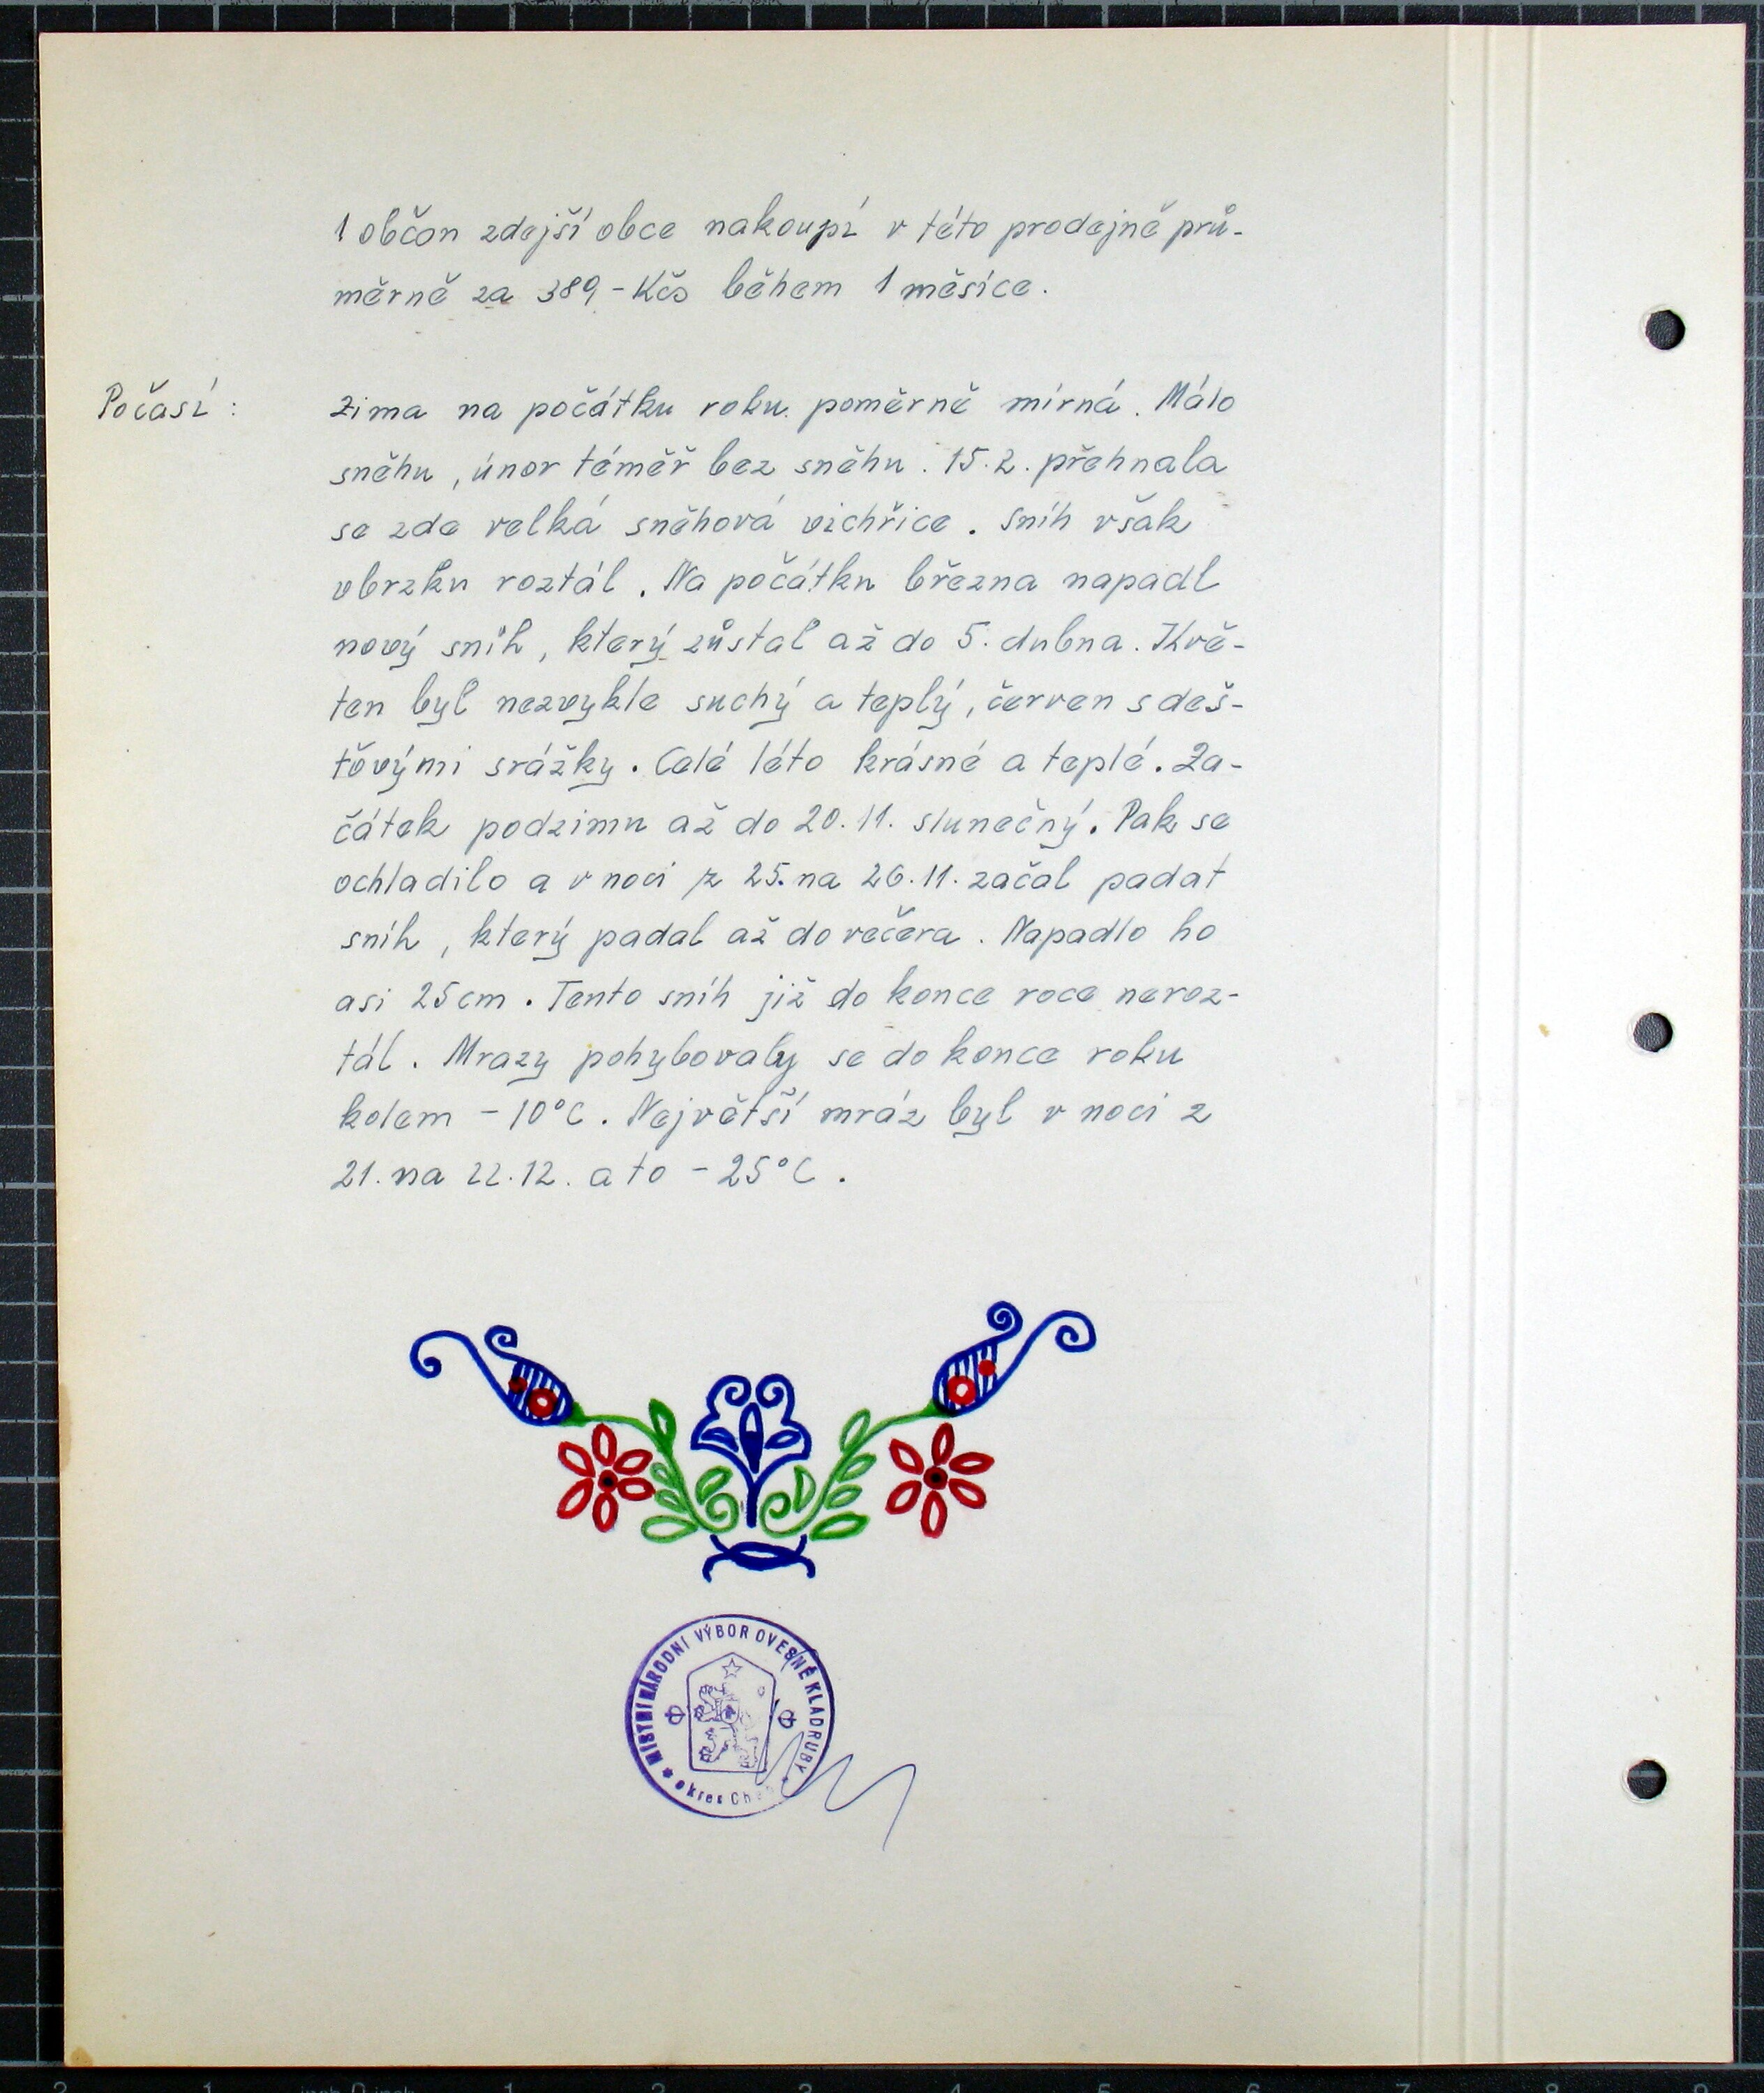 1 občan zdejší obce nakoupí v této prodejně prů-
měrně za 389,- Kčs během 1 měsíce.
Počasí: Zima na počátku roku poměrně mírná. Málo
sněhu, únor téměř bez sněhu. 15.2. přehnala
se zde velká sněhová vichřice. Sníh však
obrzku roztál. Na počátku března napadl
nový sníh, který zůstal až do 5. dubna. Kvě-
ten byl nezvykle suchý a teplý, červen s deš-
ťovými srážky. Celé léto krásné a teplé. Za-
čátek podzimu až do 20.11. slunečný. Pak se
ochladilo a v noci z 25. na 26.11. začal padat
sníh, který padal až do večera. Napadlo ho
asi 25 cm. Tento sníh již do konce roce neroz-
tál. Mrazy pohybovaly se do konce roku
kolem -10°C. Největší mráz byl v noci z
21. na 22.12. a to -25°C.
MÍSTNÍ NÁRODNÍ VÝBOR OVESNÉ KLADRUBY
okres Cheb